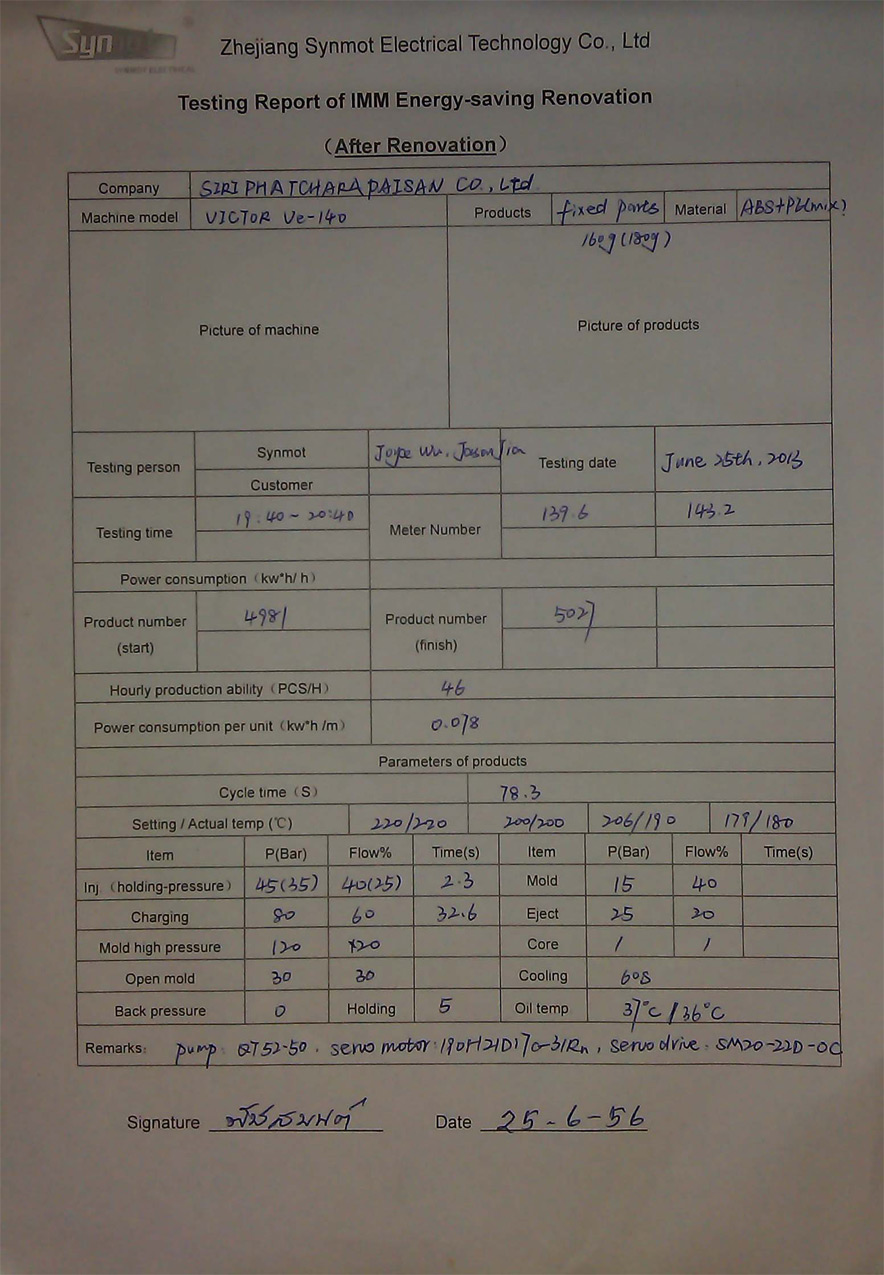 Synmot
SYNMOT ELECTRICAL
Zhejiang Synmot Electrical Technology Co., Ltd
Testing Report of IMM Energy-saving Renovation
(After Renovation)
Company SIRIPHATCHARAPAISAN CO., Ltd
Machine model VICTOR Ve-140 Products fixed parts Material ABS+PC(mix)
160g(180g)
Picture of machine Picture of products
Testing person Synmot Joype Wu, Jason Jia Testing date June 25th, 2013
Customer
Testing time 19:40~20:40 Meter Number 139.6 143.2
Power consumption (kw*h/ h)
Product number (start) 4981 Product number (finish) 5027
Hourly production ability (PCS/H) 46
Power consumption per unit (kw*h /m) 0.078
Parameters of products
Cycle time (S) 78.3
Setting / Actual temp (℃) 220/220 200/200 206/190 179/180
Item P(Bar) Flow% Time(s) Item P(Bar) Flow% Time(s)
Inj (holding-pressure) 45(35) 40(25) 2.3 Mold 15 40
Charging 80 60 32.6 Eject 25 20
Mold high pressure 120 +20 Core / /
Open mold 30 30 Cooling 60s
Back pressure 0 Holding 5 Oil temp 37°C / 36°C
Remarks: pump: QT52-50, servo motor: 190H21D170-31Rn, servo drive: SM20-22D-0C
Signature
Date 25-6-56